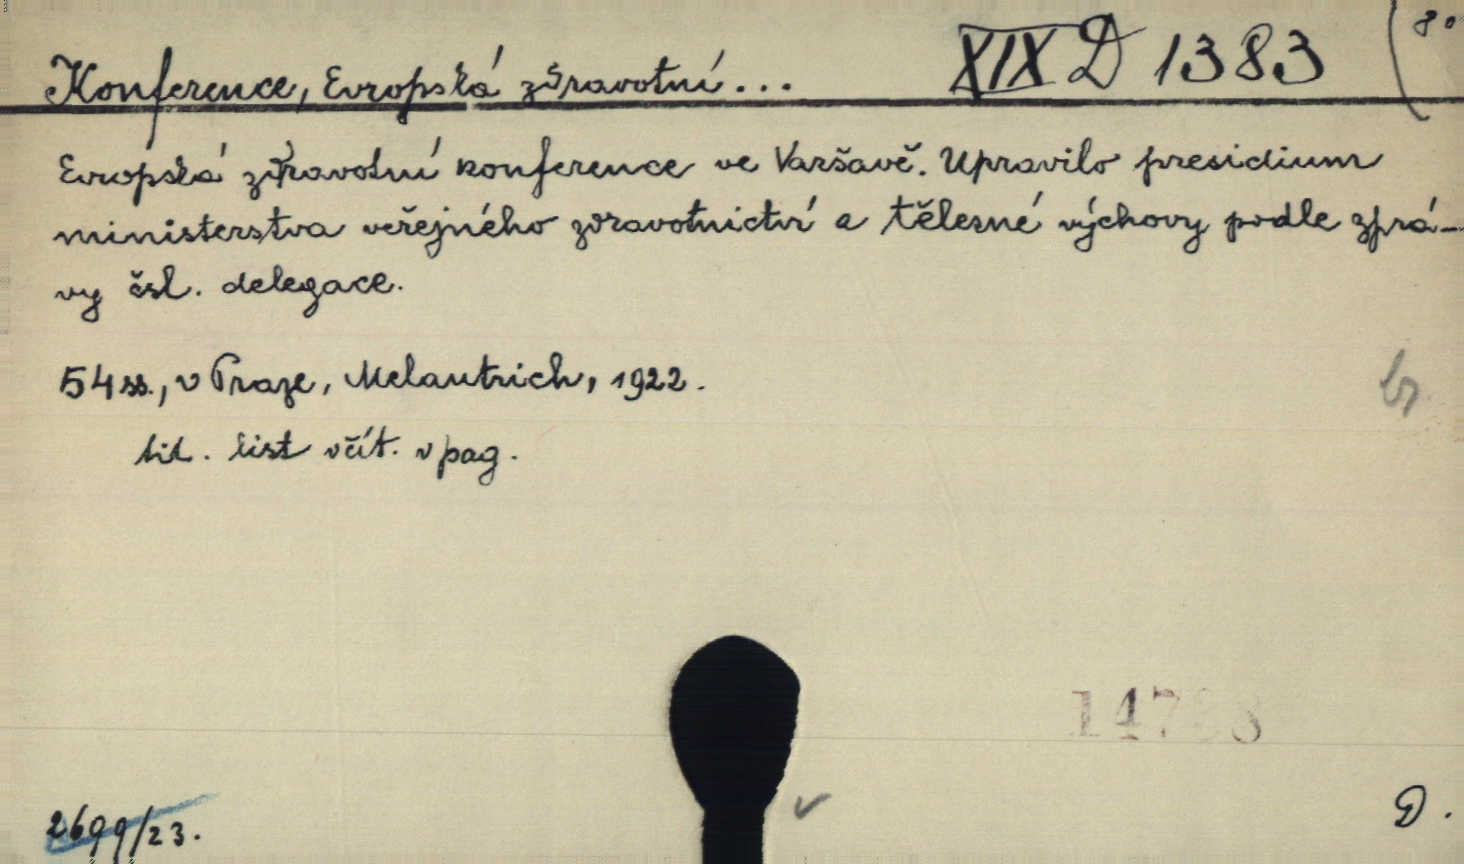 Konference, Evropská zdravotní... XIX D 1383 8°
Evropská zdravotní konference ve Varšavě. Upravilo presidium
ministerstva veřejného zdravotnictví a tělesné výchovy podle zprá-
vy čsl. delegace.
54 ss., v Praze, Melantrich, 1922.
tit. list včít. v pag.
2699/23.
D.